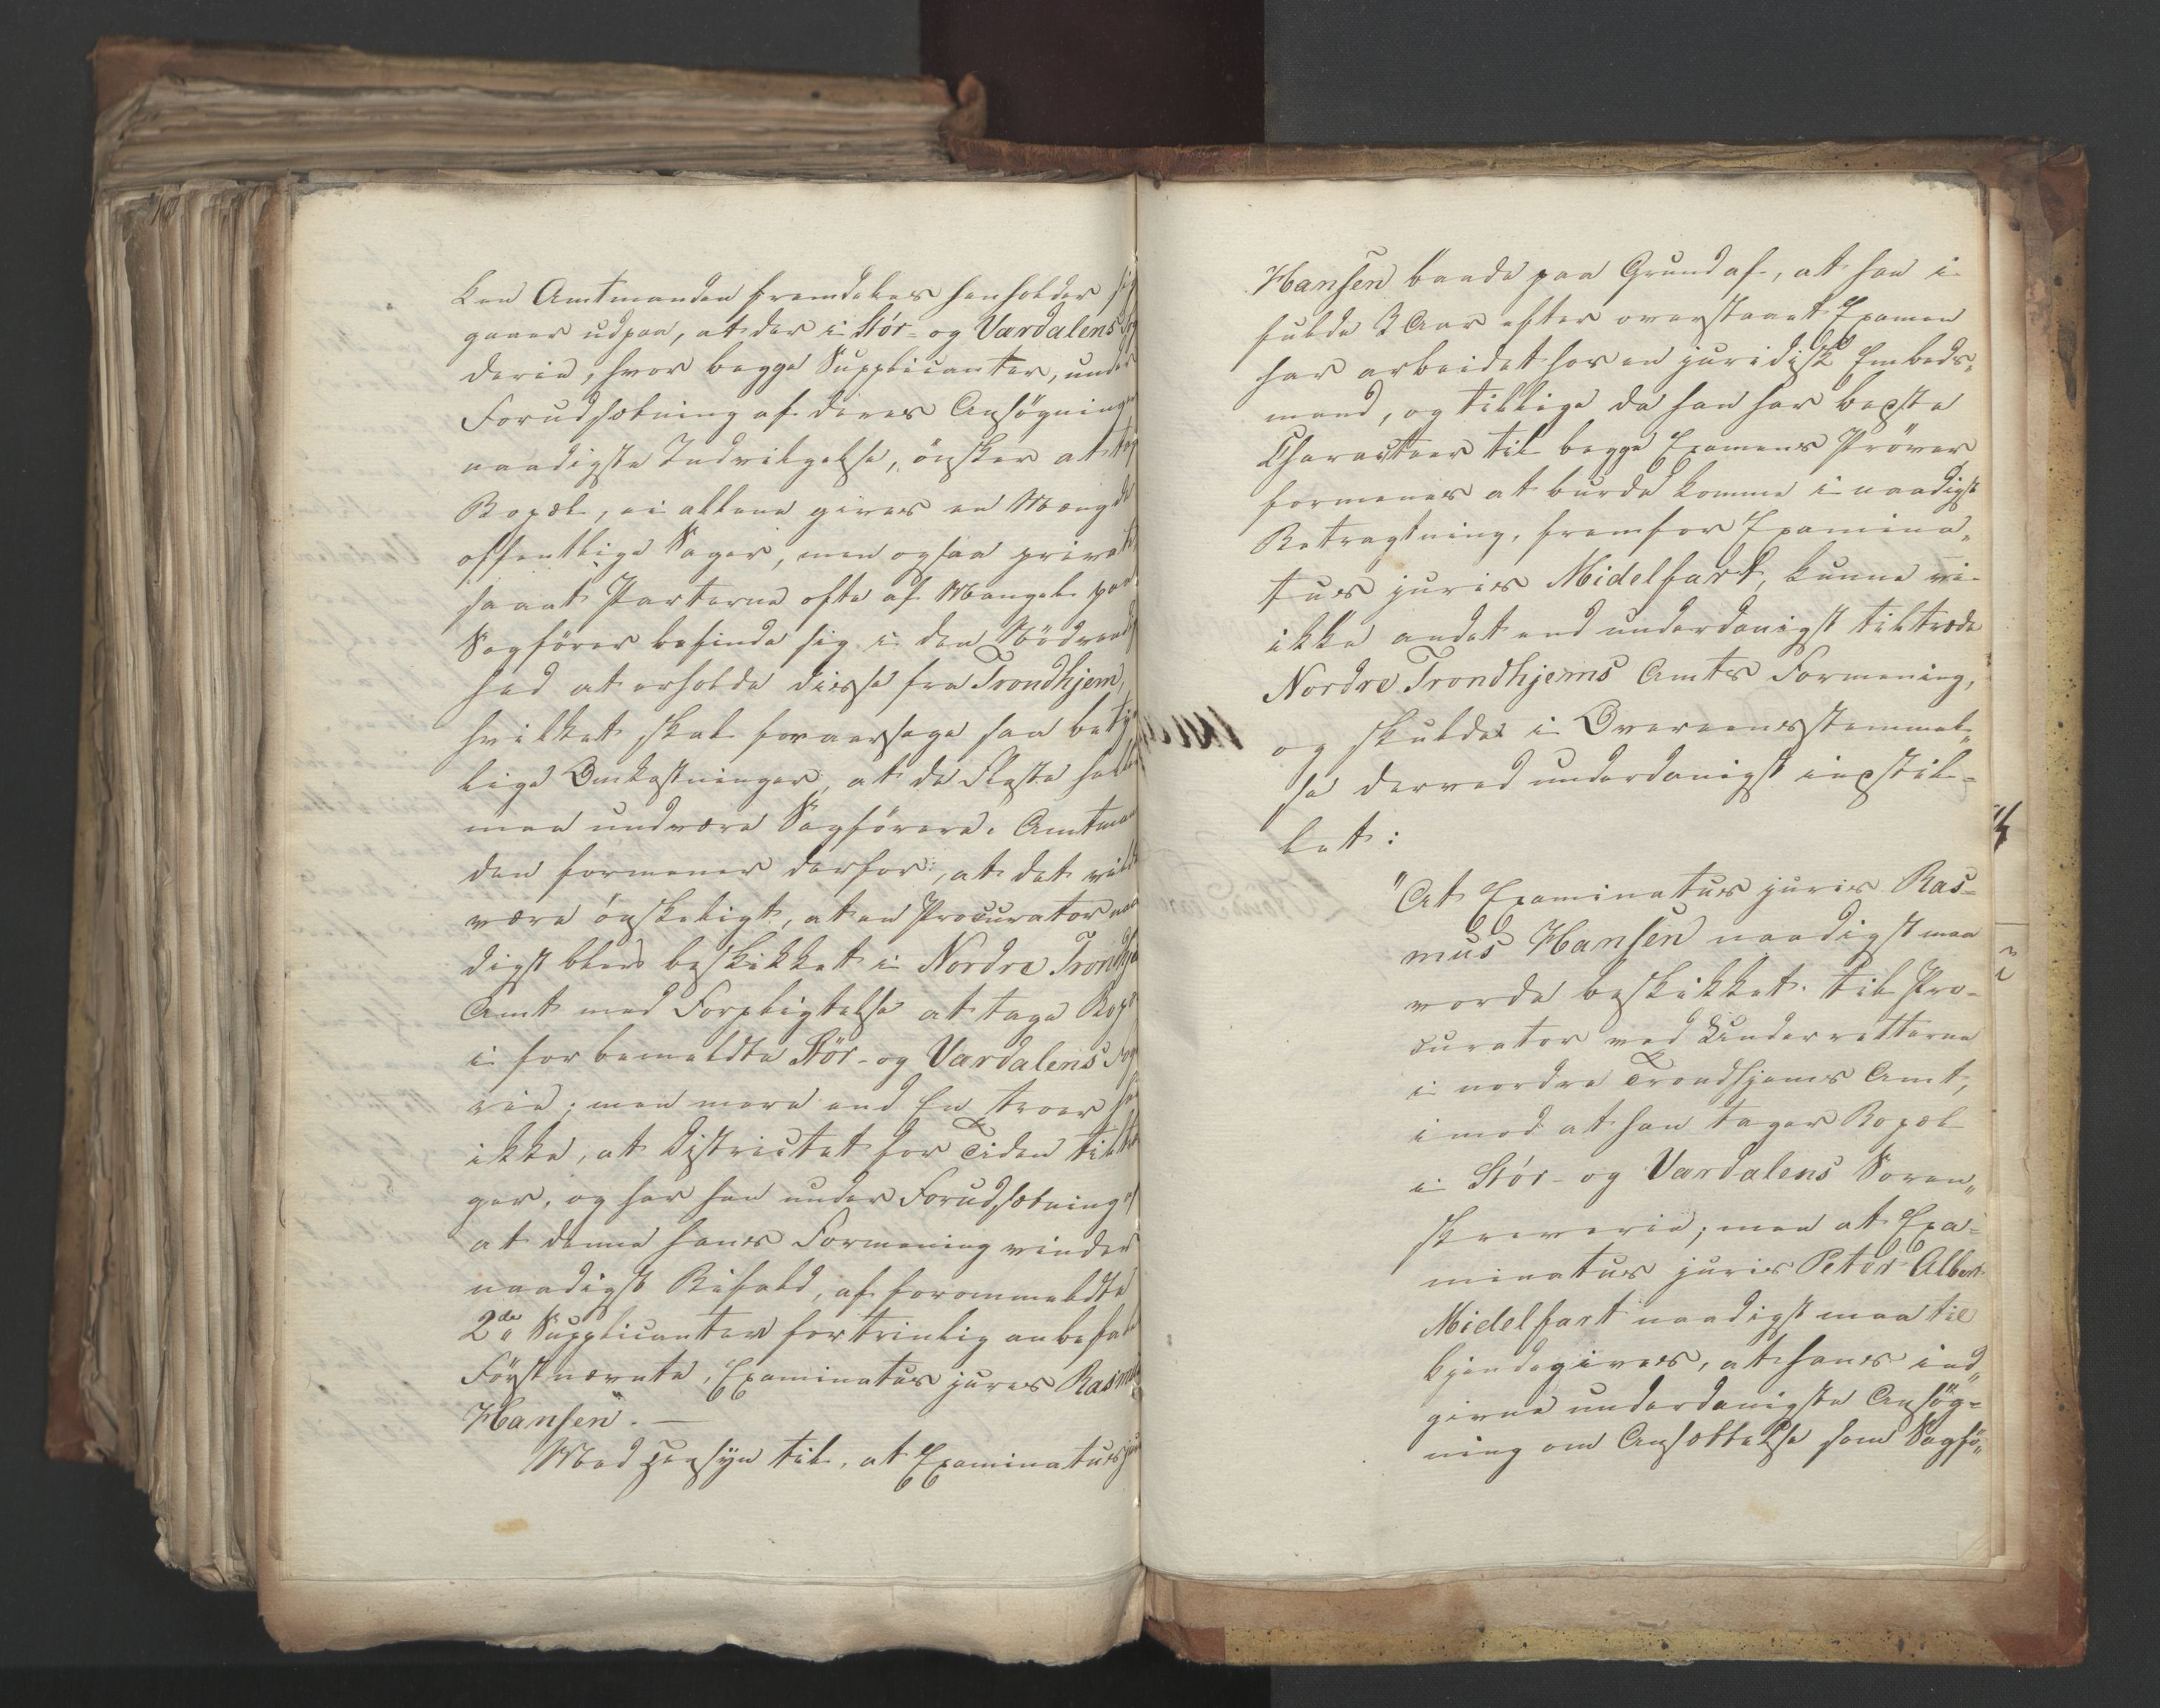 ken Amtmanden fremdeles henholder sig
gaaer udpaa, at der i Stör- og Værdalens Fog
derie, hvor begge Supplicanter, under
Forudsætning af deres Ansögninger
naadigste Indvilgelse, önsker at tag
Bopæl, ei allene gives en Mængde
offentlige Sager, men ogsaa privat
saa at Parterne ofte af Mangel paa
Sagförer befinde sig i den Nödvend
hed at erholde disse fra Trondhjem,
hvilket skal foraarsage saa bety
lige Omkostninger, at de Fleste heller
maa undvære Sagförere. Amtman
den formener derfor, at det vilde
være önskeligt, at en Procurator naa
digst blev beskikket i Nordre Trondhj
Amt med Forpligtelse at tage Bop
i forbemeldte Stör- og Værdalens Fog
rie; men mere end En troer han
ikke, at Districtet for Tiden tilta
ger, og har han under Forudsætning af
at denne hans Formening vinder
naadigst Bifald, af forommeldte
2de Supplicanter fortrinlig anbefalet
Förstnævnte, Examinatus juris Rasmus
Hansen. —
Med Hensyn til, at Examinatus jur
Hansen baade paa Grund af, at han i
fulde 3 Aar efter overstaaet Examen
har arbeidet hos en juridisk Embeds„
mand, og tillige da han har bedste
Characteer til begge Examens Pröver
formenes at burde komme i naadigst
Betragtning, fremfor Examina„
tus juris Midelfart, kunne vi
ikke andet end underdanigst tiltræde
Nordre Trondhjems Amts Formening,
og skulde i Overeensstemmel„
se derved underdanigst indstil-
let:
"At Examinatus juris Ras-
mus Hansen naadigst maa
vorde beskikket til Pro-
curator ved Underretterne
i nordre Trondhjems Amt,
imod at han tager Bopæl
i Stör- og Værdalens Soren„
skriverie; men at Exa-
minatus juris Peter Albert
Midelfart naadigst maa til
kjendegives, at hans ind„
givne underdanigste Ansög-
ning om Ansættelse som Sagfö„